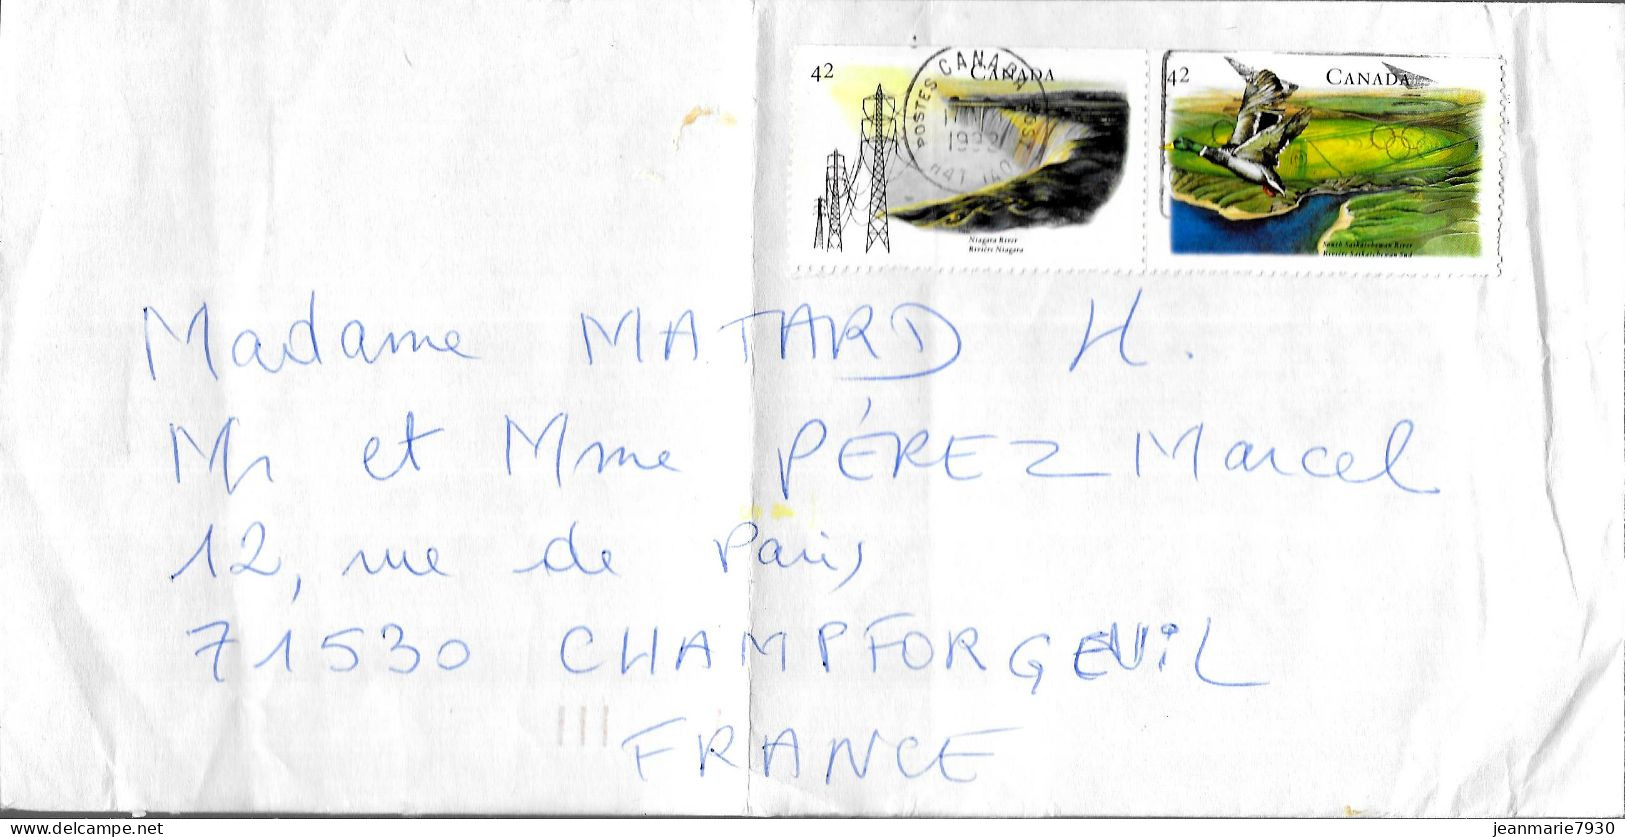 42 CANADA
Niagara River
Rivière Niagara
42 CANADA
South Saskatchewan River
Rivière Saskatchewan Sud
POSTES CANADA POST
1993
H4T 1A0
Madame MATARD H.
Mr et Mme PÉREZ Marcel
12, rue de Paris
71530 CHAMPFORGEUIL
FRANCE
jeanmarie7930